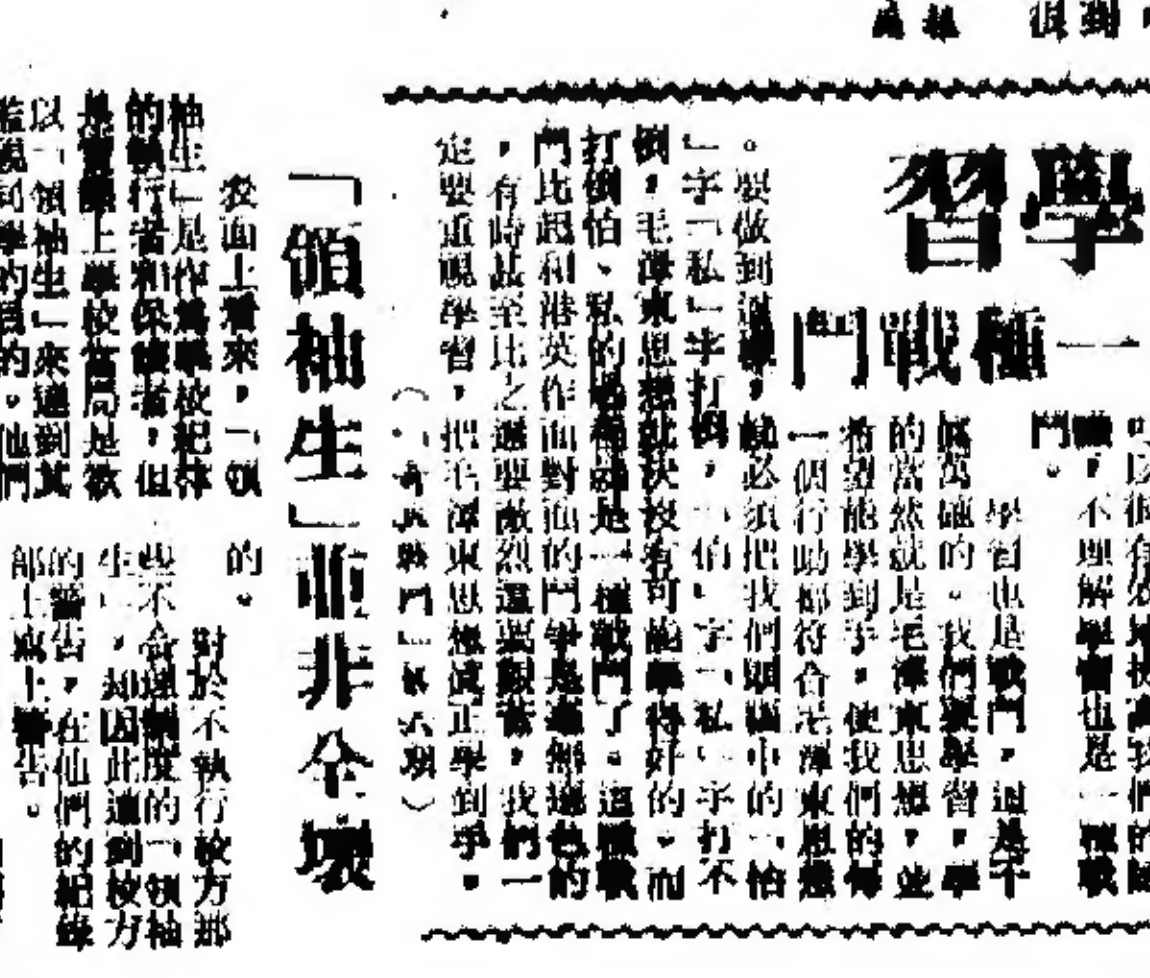 學習
一種戰鬥
不理解學習也是一種戰
鬥。
學習也是戰鬥,這是千
眞萬確的。我們要學習,學
的當然就是毛澤東思想,並
希望能學到手,使我們的每
一個行動都符合毛澤東思想
。要做到這樣,就必須把我們頭腦中的「怕
」字「私」字打倒,「怕」字「私」字打不
倒,毛澤東思想就決沒有可能學得好的。而
打倒怕、私的過程就是一種戰鬥了。這種戰
鬥比起和港英作面對面的鬥爭是毫無遜色的
,有時甚至比之還要激烈還要艱苦,我們一
定要重視學習,把毛澤東思想眞正學到手。
戰鬥」第六期)
「領袖生」並非全壞
表面上看來,「領
袖生」是作爲學校紀律
的執行者和保護者,但
是實際上學校當局是欲
以「領袖生」來達到其
同學的目的。他們
的。
對於不執行校方那
些不合理制度的「領袖
生」,却因此遭到校方
的警告,在他們的紀錄
部上寫上警告。